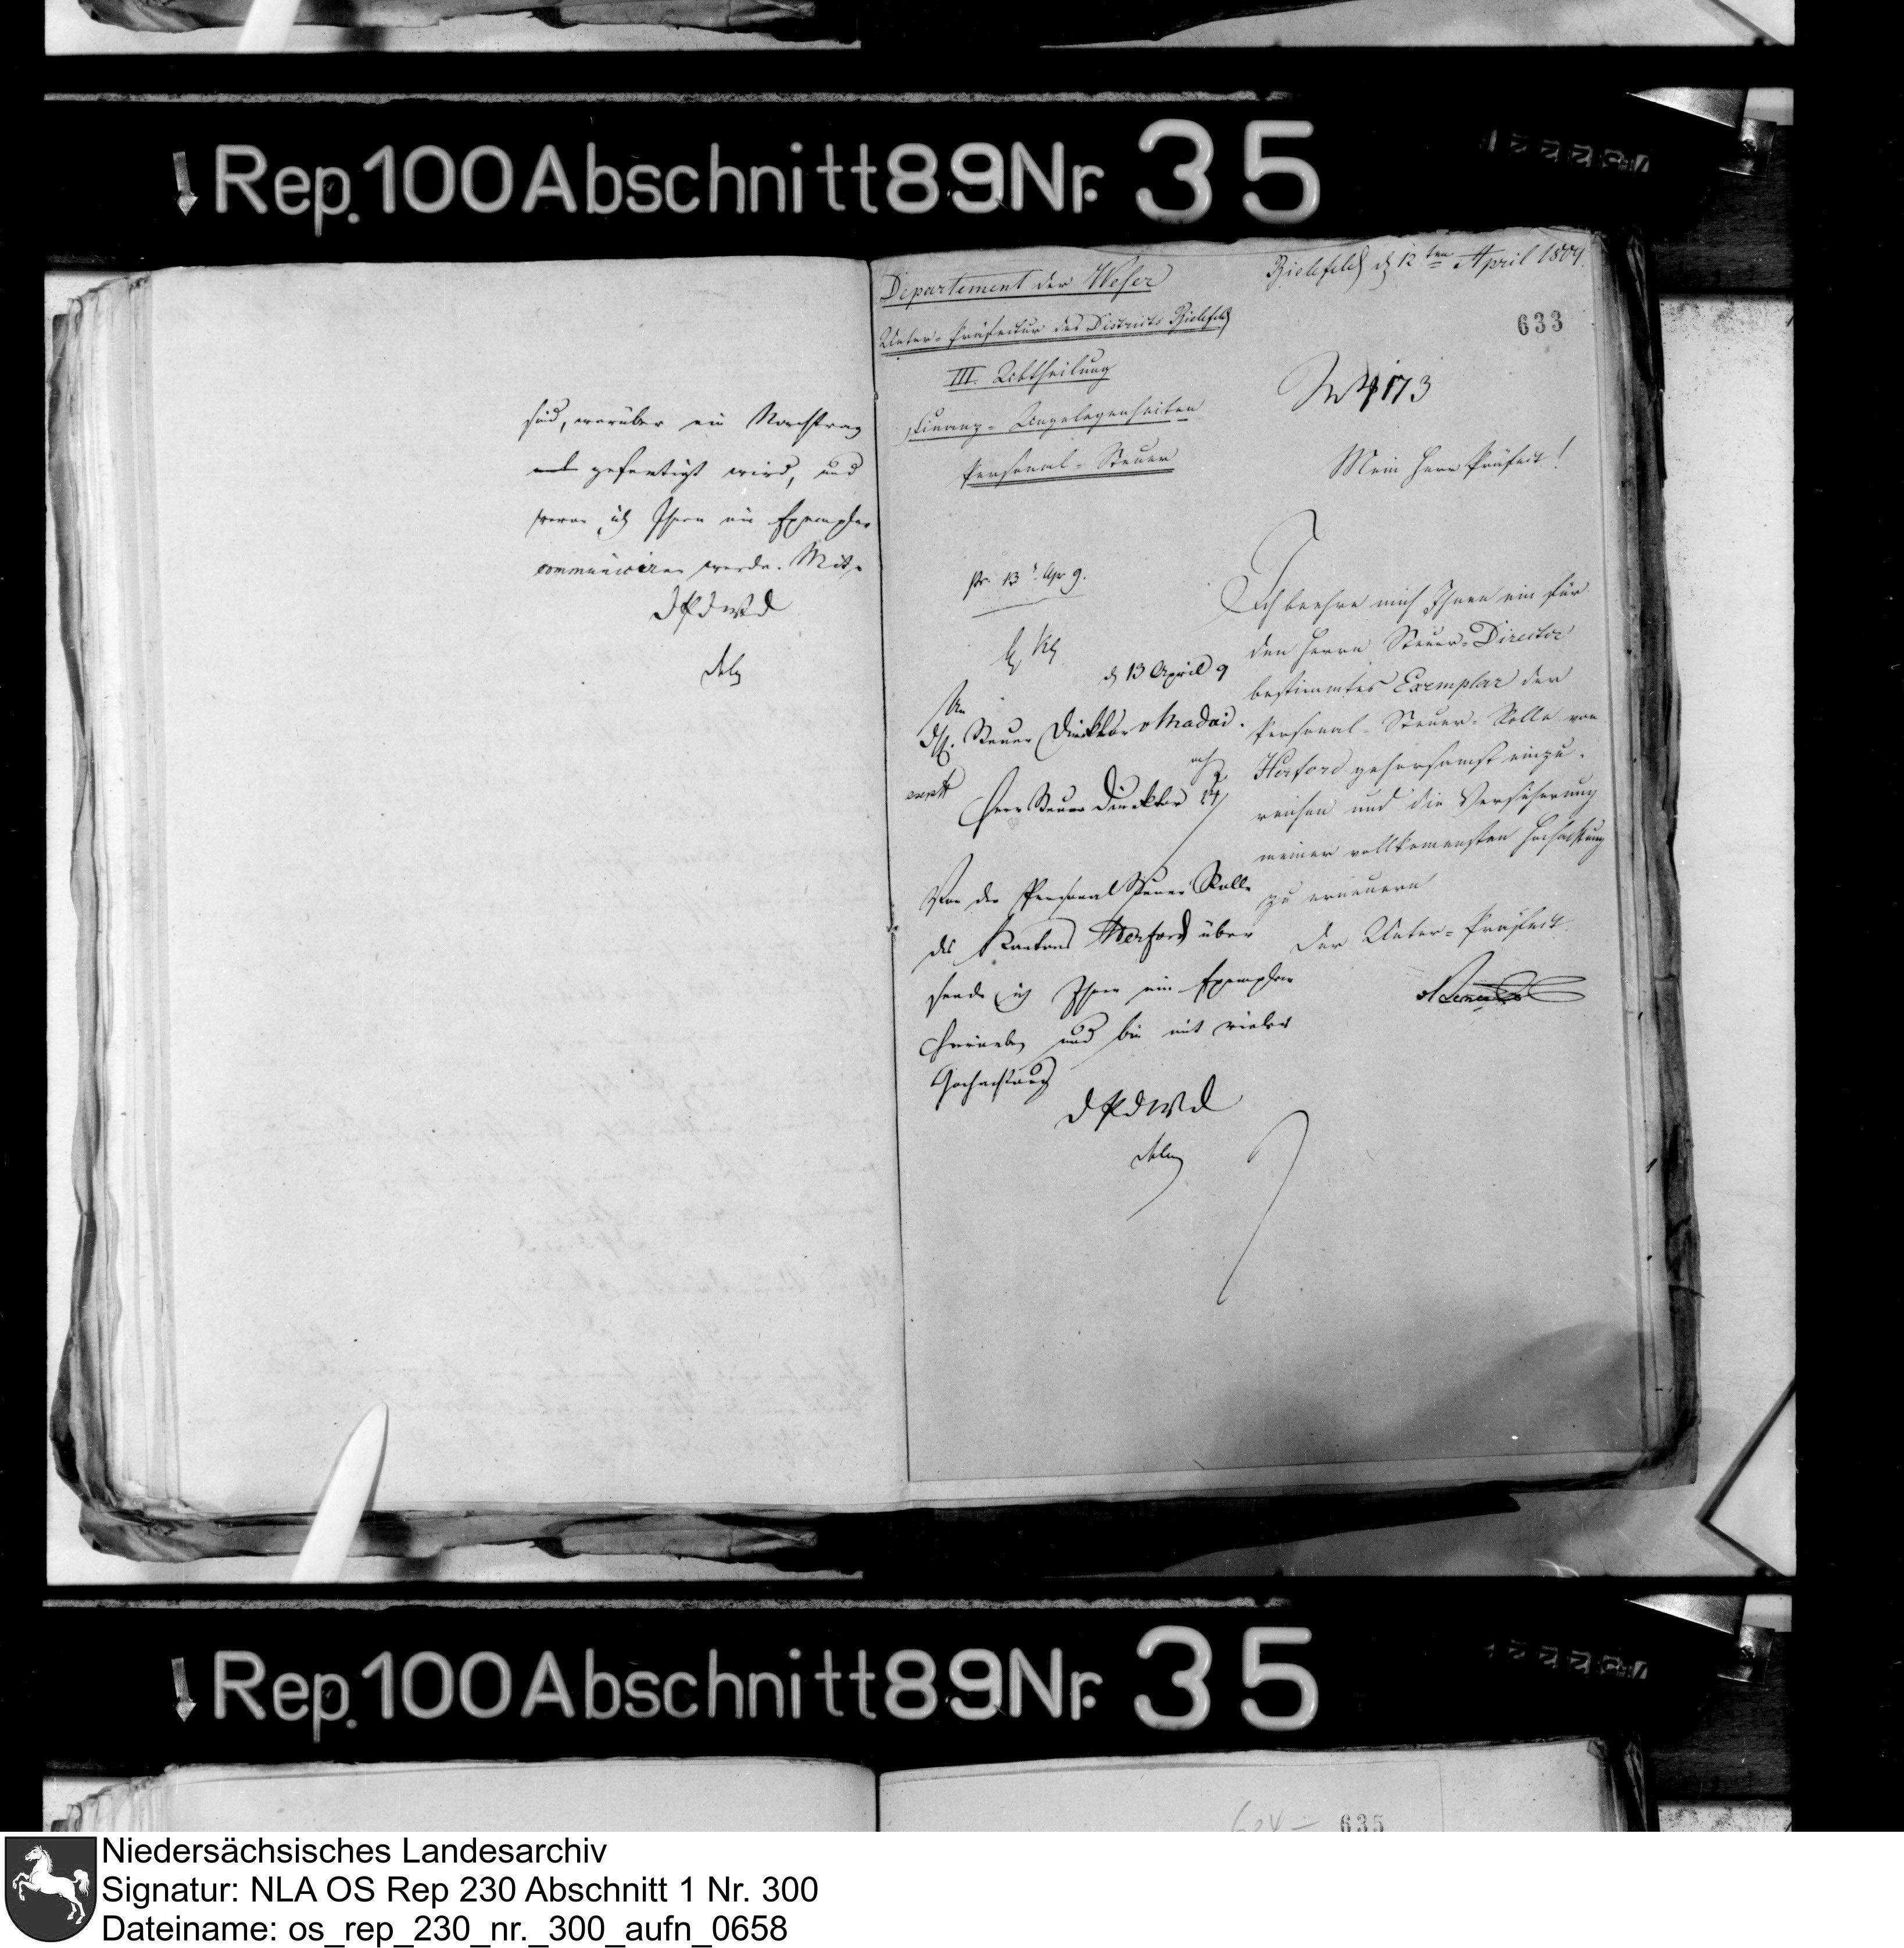 Rep. 100 Abschnitt 89 Nr. 35
sind, worüber ein Nachtrag
gefertigt wird, und
wovon ich Ihnen ein Exemplar
communiciren werde. Mit
DPdWD
Departement der Weser
Unter-Präfectur des Districts Bielefeld
III. Abtheilung
Finanz-Angelegenheiten
Personal-Steuer
pr. 13 Apr 9.
d 13 April 9
An
Steuer Direktor v Madai.
Herr Steuer Direcktor
Von der Personal Steuer Rolle
des Kantons Herford über
sende ich Ihnen ein Exemplar
hierneben und bin mit vieler
Hochachtung
DPdWD
Bielefeld d 12ten April 1809.
633
4173
Mein Herr Präfect!
Ich beehre mich Ihnen ein für
den Herrn Steuer-Director
bestimmtes Exemplar der
Personal-Steuer-Rolle von
Herford gehorsamst einzu-
reichen und die Versicherung
meiner vollkomensten Hochachtung
zu erneuern
Der Unter-Präfect
Rep. 100 Abschnitt 89 Nr. 35
635
Niedersächsisches Landesarchiv
Signatur: NLA OS Rep 230 Abschnitt 1 Nr. 300
Dateiname: os_rep_230_nr._300_aufn_0658